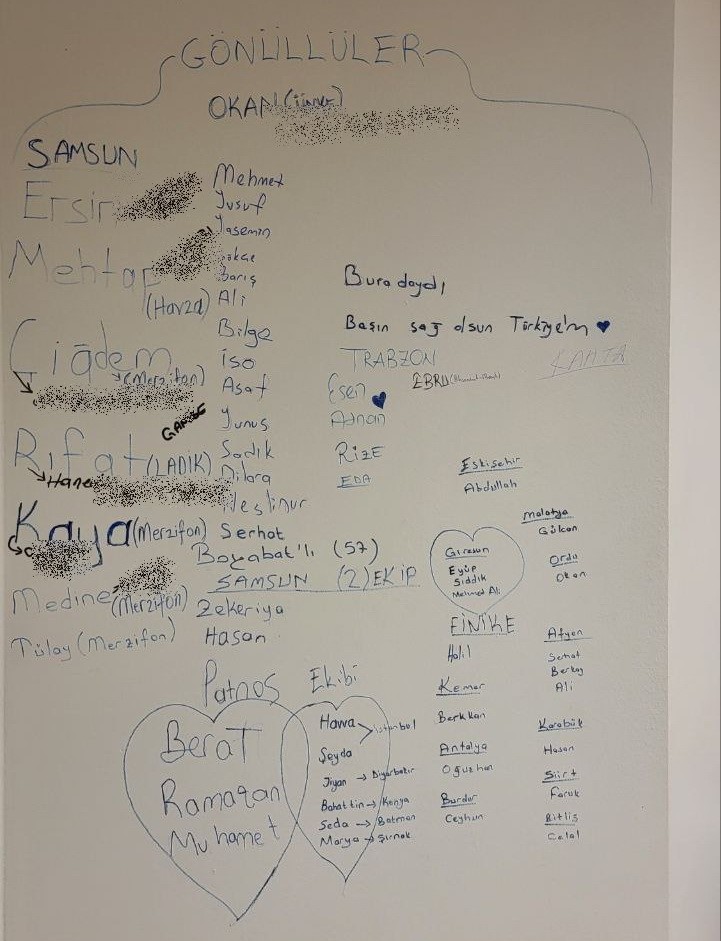 GÖNÜLLÜLER
OKAN
SAMSUN
Ersin
Mehtap
(Havza)
Çiğdem
(Merzifon)
GAMZE
Rıfat (LADİK)
Kaya (Merzifon)
Medine (Merzifon)
Tülay (Merzifon)
Mehmet
Yusuf
Yasemin
Gökçe
Barış
Ali
Bilge
İso
Asaf
Yunus
Sadık
Dilara
Serhat
Boyabat'lı (57)
SAMSUN (2) EKİP
Zekeriya
Hasan
Buradaydı
Başın sağ olsun Türkiye'm ♥
TRABZON
Esen
EBRU
Adnan
RİZE
EDA
KAHTA
Eskişehir
Abdullah
Malatya
Gülcan
Giresun
Eyüp
Sıddık
Mehmed Ali
Ordu
Okan
FİNİKE
Halil
Afyon
Serhat
Berkay
Ali
Kemer
Berkkan
Karabük
Hasan
Antalya
Oğuzhan
Siirt
Faruk
Burdur
Ceyhun
Bitlis
Celal
Patnos Ekibi
Berat
Ramazan
Muhamet
Havva
İstanbul
Şeyda
Jiyan → Diyarbakır
Bahattin → Konya
Seda → Batman
Marya → Şırnak